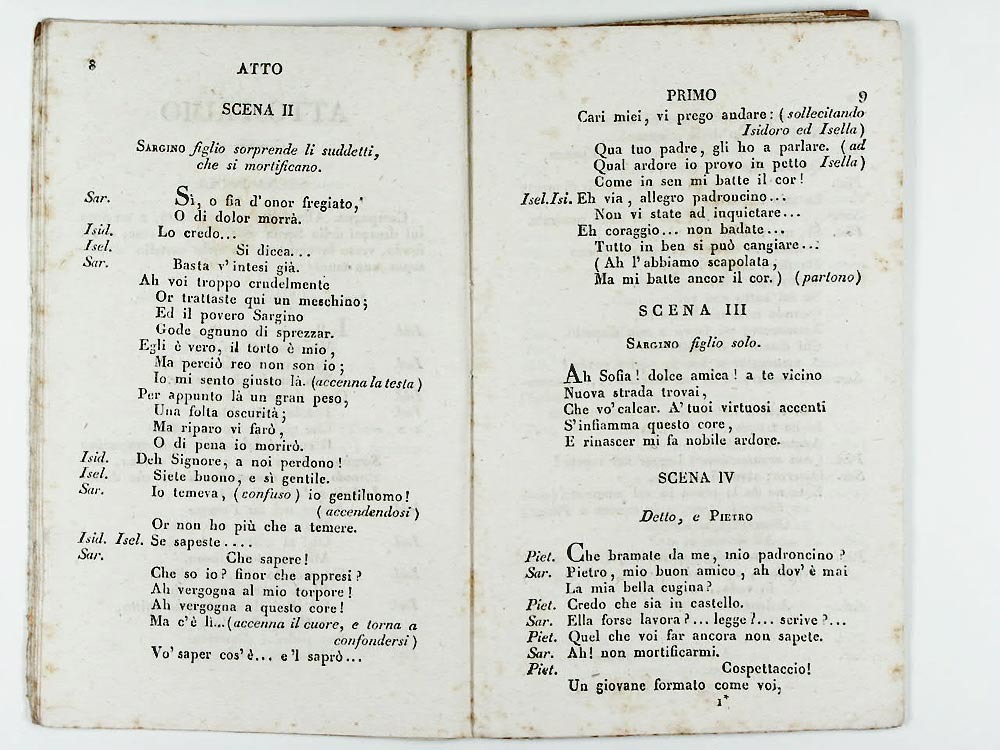 8
ATTO
SCENA II
SARGINO figlio sorprende li suddetti,
che si mortificano.
Sar. Sì, o sia d'onor fregiato,
O di dolor morrà.
Isid. Lo credo...
Isel. Si dicea...
Sar. Basta v'intesi già.
Ah voi troppo crudelmente
Or trattaste quì un meschino;
Ed il povero Sargino
Gode ognuno di sprezzar.
Egli è vero, il torto è mio,
Ma perciò reo non son io;
Io mi sento giusto là. (accenna la testa)
Per appunto là un gran peso,
Una folta oscurità;
Ma riparo vi farò,
O di pena io morirò.
Isid. Deh Signore, a noi perdono!
Isel. Siete buono, e sì gentile.
Sar. Io temeva, (confuso) io gentiluomo!
(accendendosi)
Or non ho più che a temere.
Isid. Isel. Se sapeste....
Sar. Che sapere!
Che so io? finor che appresi?
Ah vergogna al mio torpore!
Ah vergogna a questo core!
Ma c'è lì...(accenna il cuore, e torna a
confondersi)
Vo' saper cos'è... e 'l saprò...
PRIMO
9
Cari miei, vi prego andare: (sollecitando
Isidoro ed Isella)
Qua tuo padre, gli ho a parlare. (ad
Qual ardore io provo in petto Isella)
Come in sen mi batte il cor!
Isel.Isi. Eh via, allegro padroncino...
Non vi state ad inquietare...
Eh coraggio... non badate...
Tutto in ben si può cangiare...
(Ah l'abbiamo scapolata,
Ma mi batte ancor il cor.) (partono)
SCENA III
SARGINO figlio solo.
Ah Sofia! dolce amica! a te vicino
Nuova strada trovai,
Che vo' calcar. A' tuoi virtuosi accenti
S'infiamma questo core,
E rinascer mi fa nobile ardore.
SCENA IV
Detto, e PIETRO
Piet. Che bramate da me, mio padroncino?
Sar. Pietro, mio buon amico, ah dov'è mai
La mia bella cugina?
Piet. Credo che sia in castello.
Sar. Ella forse lavora?... legge?... scrive?...
Piet. Quel che voi far ancora non sapete.
Sar. Ah! non mortificarmi.
Piet. Cospettaccio!
Un giovane formato come voi,
1*